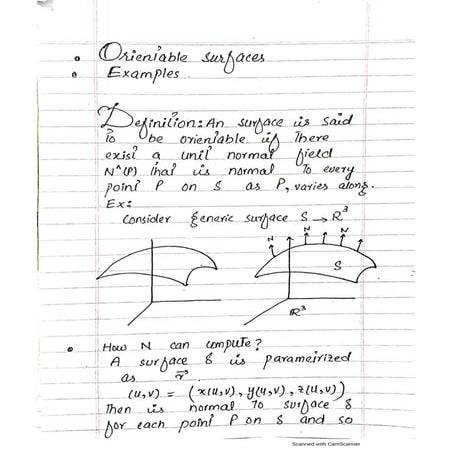 • Orientable surfaces
• Examples
Definition: An surface is said
to be orientable if there
exist a unit normal field
N^(P) that is normal to every
point P on S as P, varies along.
Ex:
Consider generic surface S → R³
N N N N N
S
R³
• How N can compute?
A surface S is parametrized
as r⃗
(u,v) = (x(u,v), y(u,v), z(u,v))
Then is normal to surface S
for each point P on S and so
Scanned with CamScanner